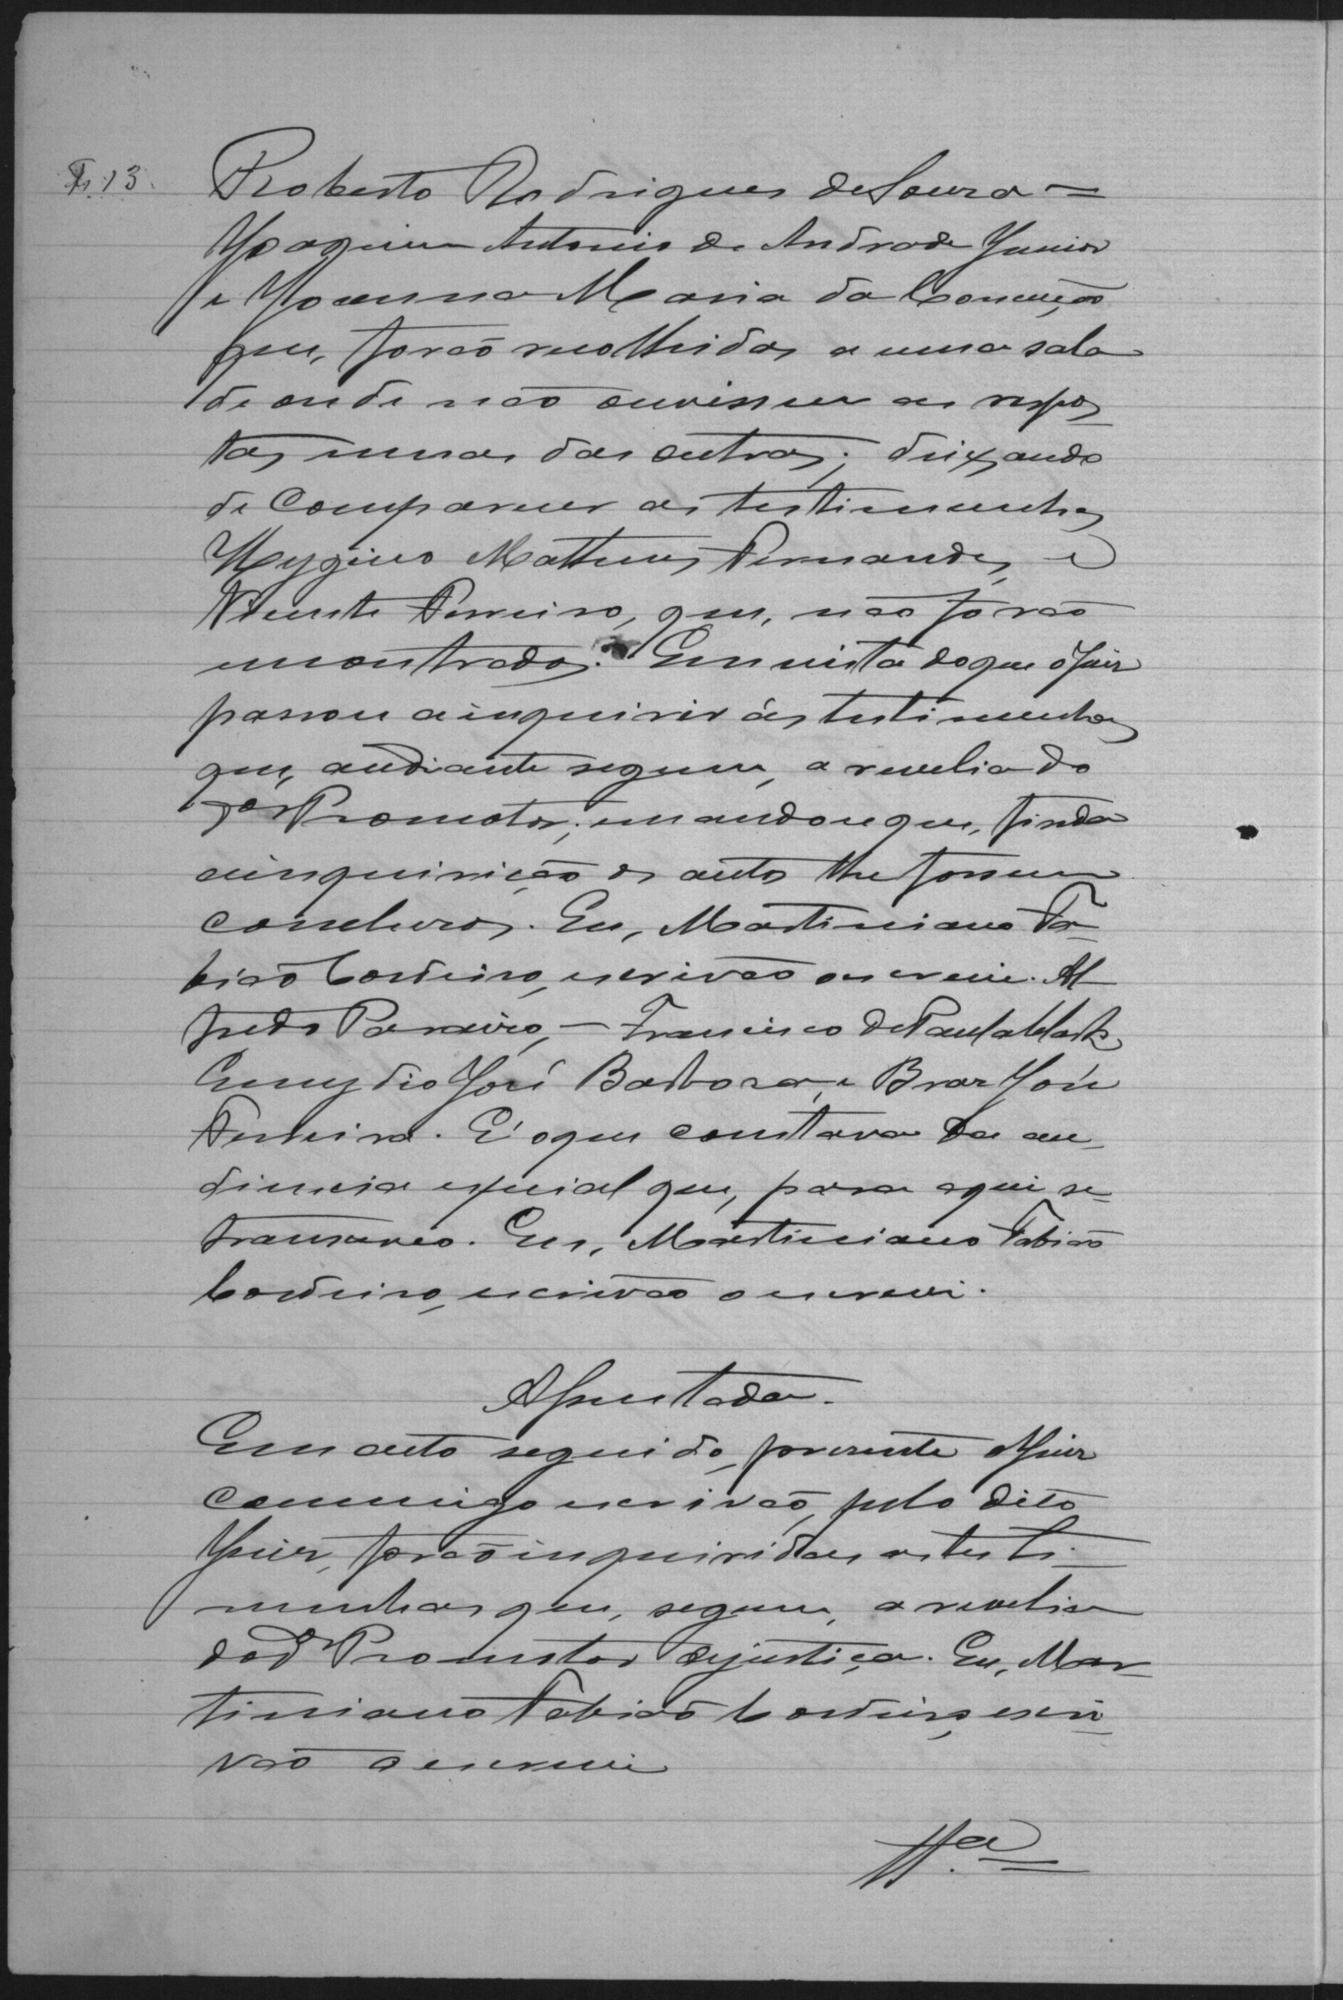 Fs. 13.
Roberto Rodrigues de Souza =
Joaquim Antonio de Andrade Junior
e Joanna Maria da Conceição
que, forão recolhidas a uma sala
de onde não ouvissem as respos_
tas umas das outras; deixando
de comparecer as testimunhas
Hygino Matheus Fernandes e
Vicente Ferreira, que, não forão
encontrados. Em vista do que o Juiz
passou a inquirir ás testimunhas
que, andiante seguem, a revelia do
Promotor; mandou que, finda
a inquirição os autos lhe fossem
conclusos. Eu, Martiniano Fa_
bião Cordeiro, escrivão o escrevi. Al_
fredo – Francisco de Paula
Emygdio José Barbosa, e Braz José
Ferreira. E' o que constava da au_
diencia especial que, para aqui se
transcreveo. Eu, Martiniano Fabião
Cordeiro, escrivão o escrevi.
Assentada.
Em acto seguido, presente o Juiz
commigo escrivão, pelo dito
Juiz, forão inquiridas as testi_
munhas que, seguem, a revelia
do Dr Promotor de justiça. Eu, Mar_
tiniano Fabião Cordeiro, escri_
vão o escrevi